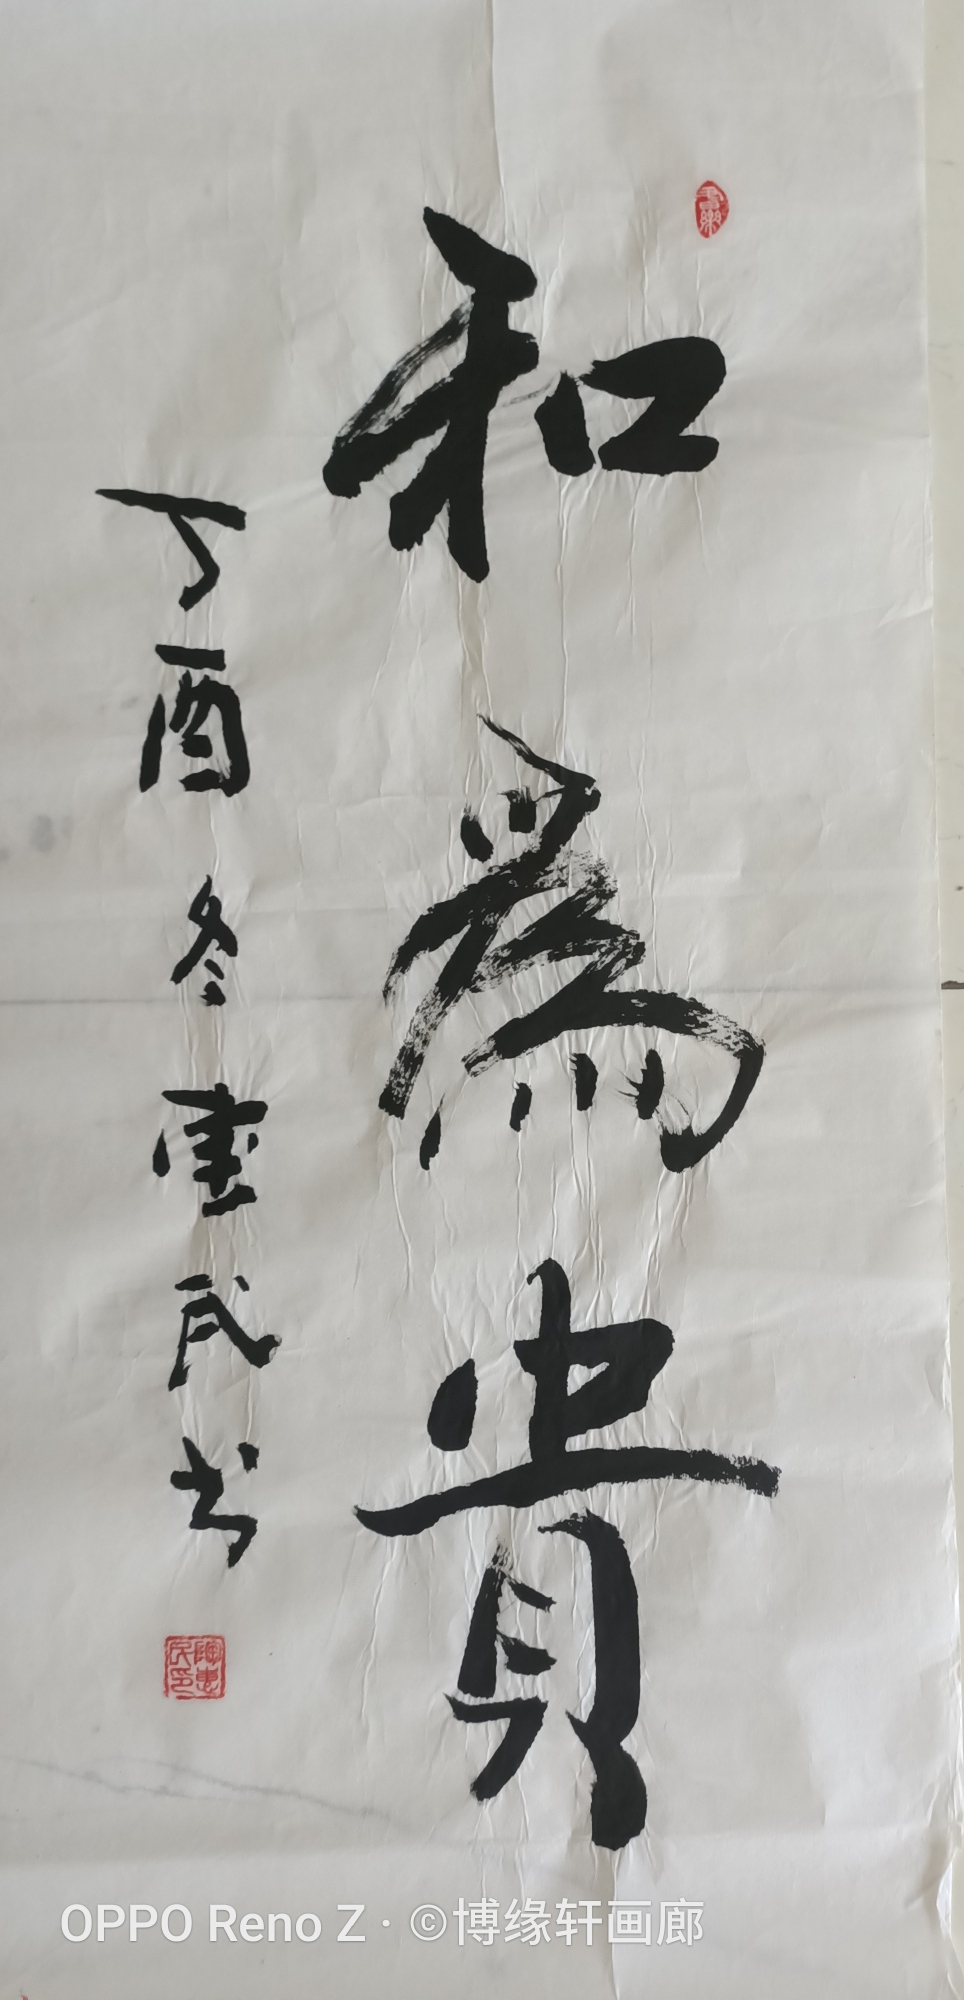 和爲貴
丁酉冬雲民书
OPPO Reno Z · ©博缘轩画廊